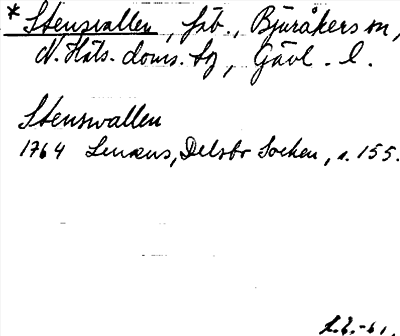 * Stensvallen, fäb., Bjuråkers sn,
N. Häls. doms. bg, Gävl. l.
Stenswallen
1764 Lenæus, Delsbo Socken, s. 155.
L.L.-61.